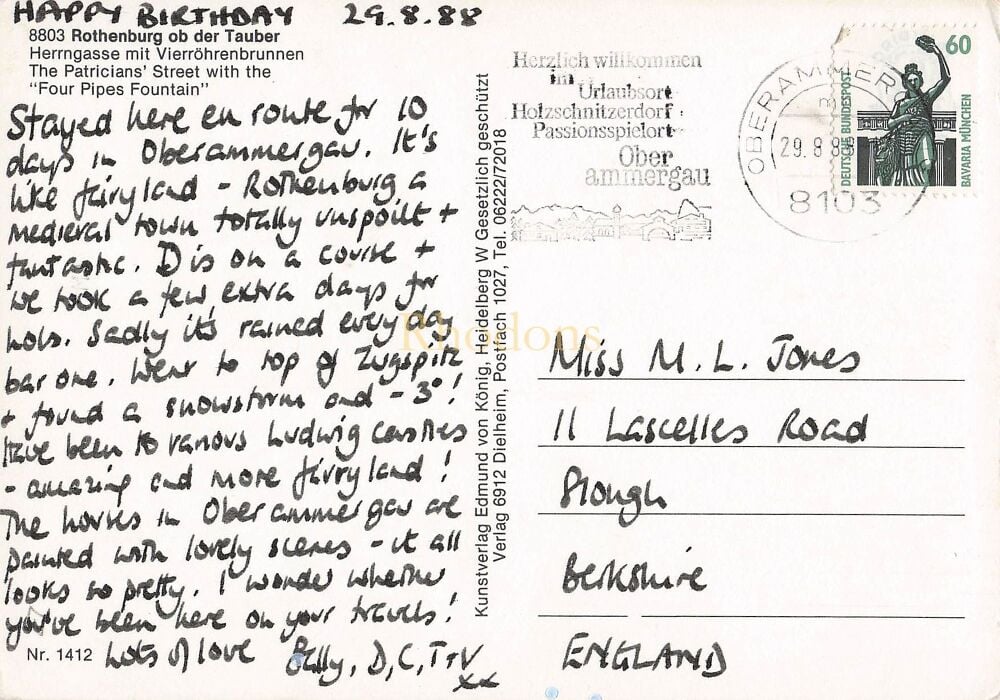 HAPPY BIRTHDAY 29.8.88
8803 Rothenburg ob der Tauber
Herrngasse mit Vierröhrenbrunnen
The Patricians' Street with the
"Four Pipes Fountain"
Stayed here en route for 10
days in Oberammergau. It's
like fairyland - Rothenburg a
medieval town totally unspoilt +
fantastic. D is on a course +
we took a few extra days for
hols. Sadly it's rained every day
bar one. Went to top of Zugspitz
+ found a snowstorm and -3°!
Have been to various Ludwig castles
- amazing and more fairyland!
The houses in Oberammergau are
painted with lovely scenes - it all
looks so pretty. I wonder whether
you've been here on your travels!
Nr. 1412
Lots of love Billy, D, C, T + V
xx
Kunstverlag Edmund von König, Heidelberg W Gesetzlich geschützt
Verlag 6912 Dielheim, Postfach 1027, Tel. 06222/72018
Herzlich willkommen
im
Urlaubsort
Holzschnitzerdorf
Passionsspielort
Ober
ammergau
OBERAMMER
29.8.8
8103
60
DEUTSCHE BUNDESPOST
BAVARIA MÜNCHEN
Rhodons
Miss M. L. Jones
11 Lascelles Road
Slough
Berkshire
ENGLAND